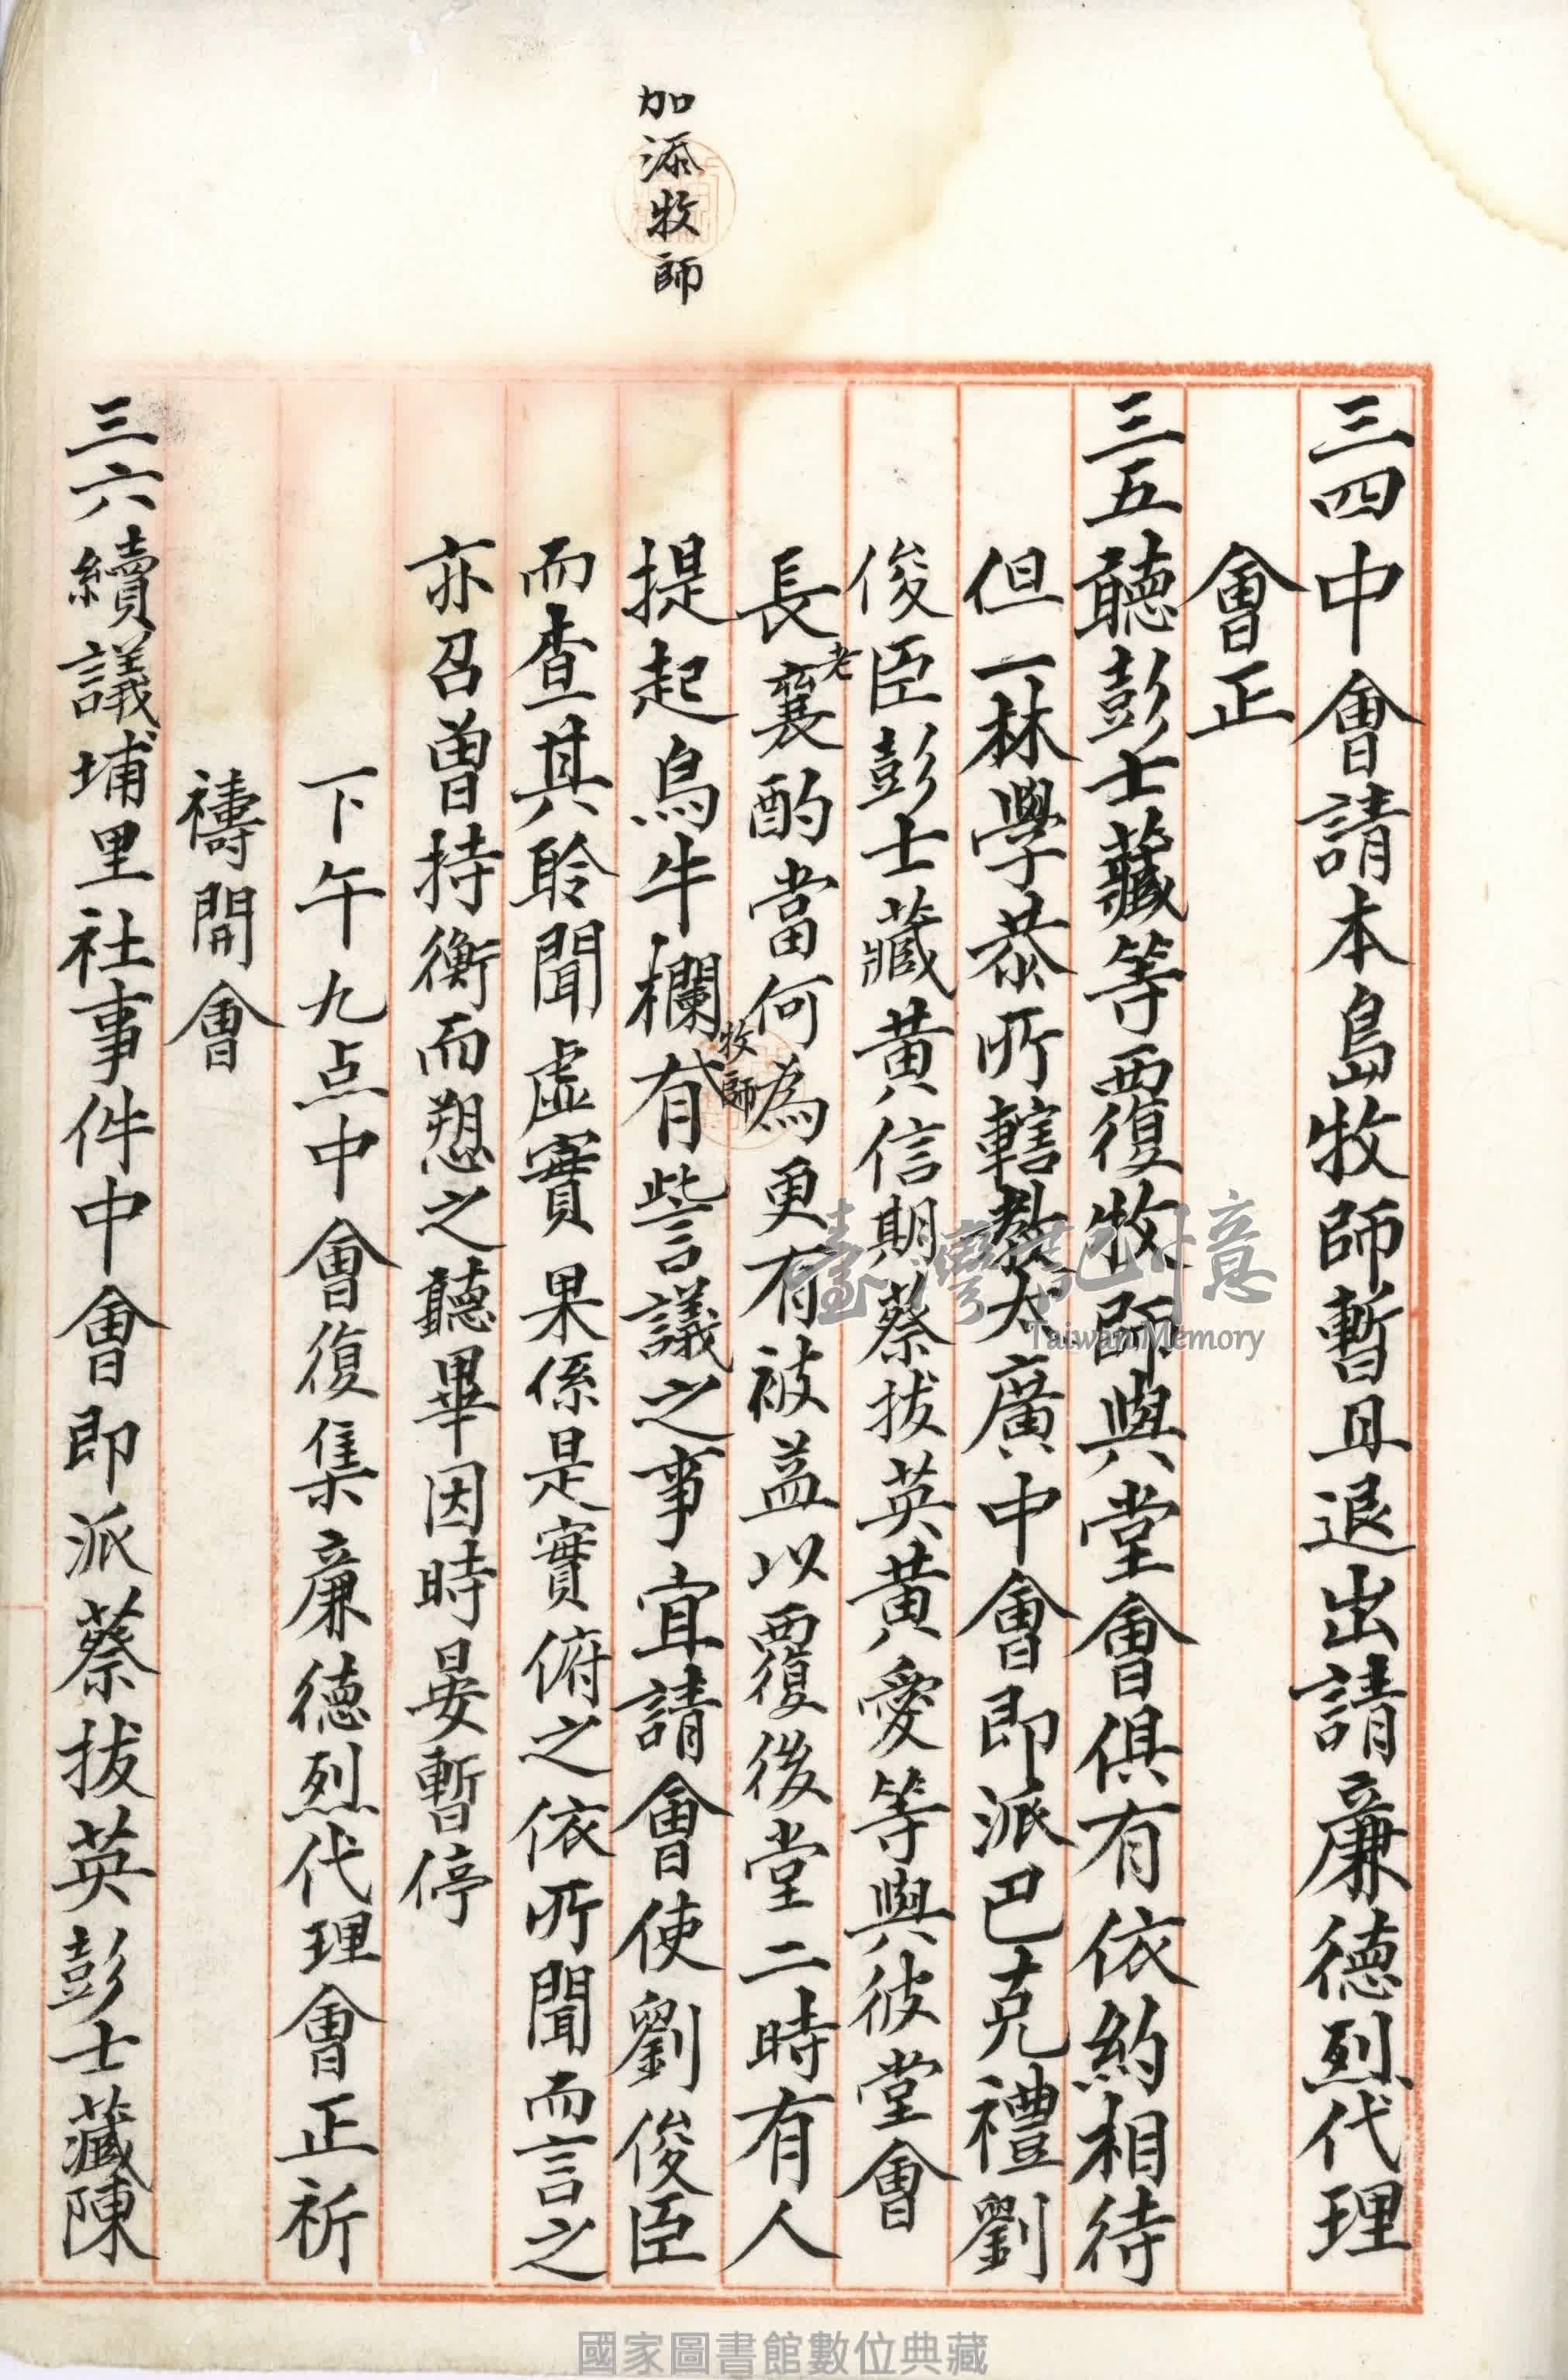 加添牧師
三四中會請本島牧師暫且退出請廉德烈代理
會正
三五聽彭士藏等覆牧師與堂會俱有依約相待
但一林學恭所轄教太廣中會即派巴克禮劉
俊臣彭士藏黃信期蔡拔英黃愛等與彼堂會
長老襄酌當何為更有被益以覆後堂二時有人
提起烏牛欄有牧師訾議之事宜請會使劉俊臣
而查其聆聞虛實果係是實俯之依所聞而言之
亦召曾持衡而愬之聽畢因時晏暫停
下午九点中會復集廉德烈代理會正祈
禱開會
三六續議埔里社事件中會即派蔡拔英彭士藏陳
臺灣記憶
Taiwan Memory
國家圖書館數位典藏